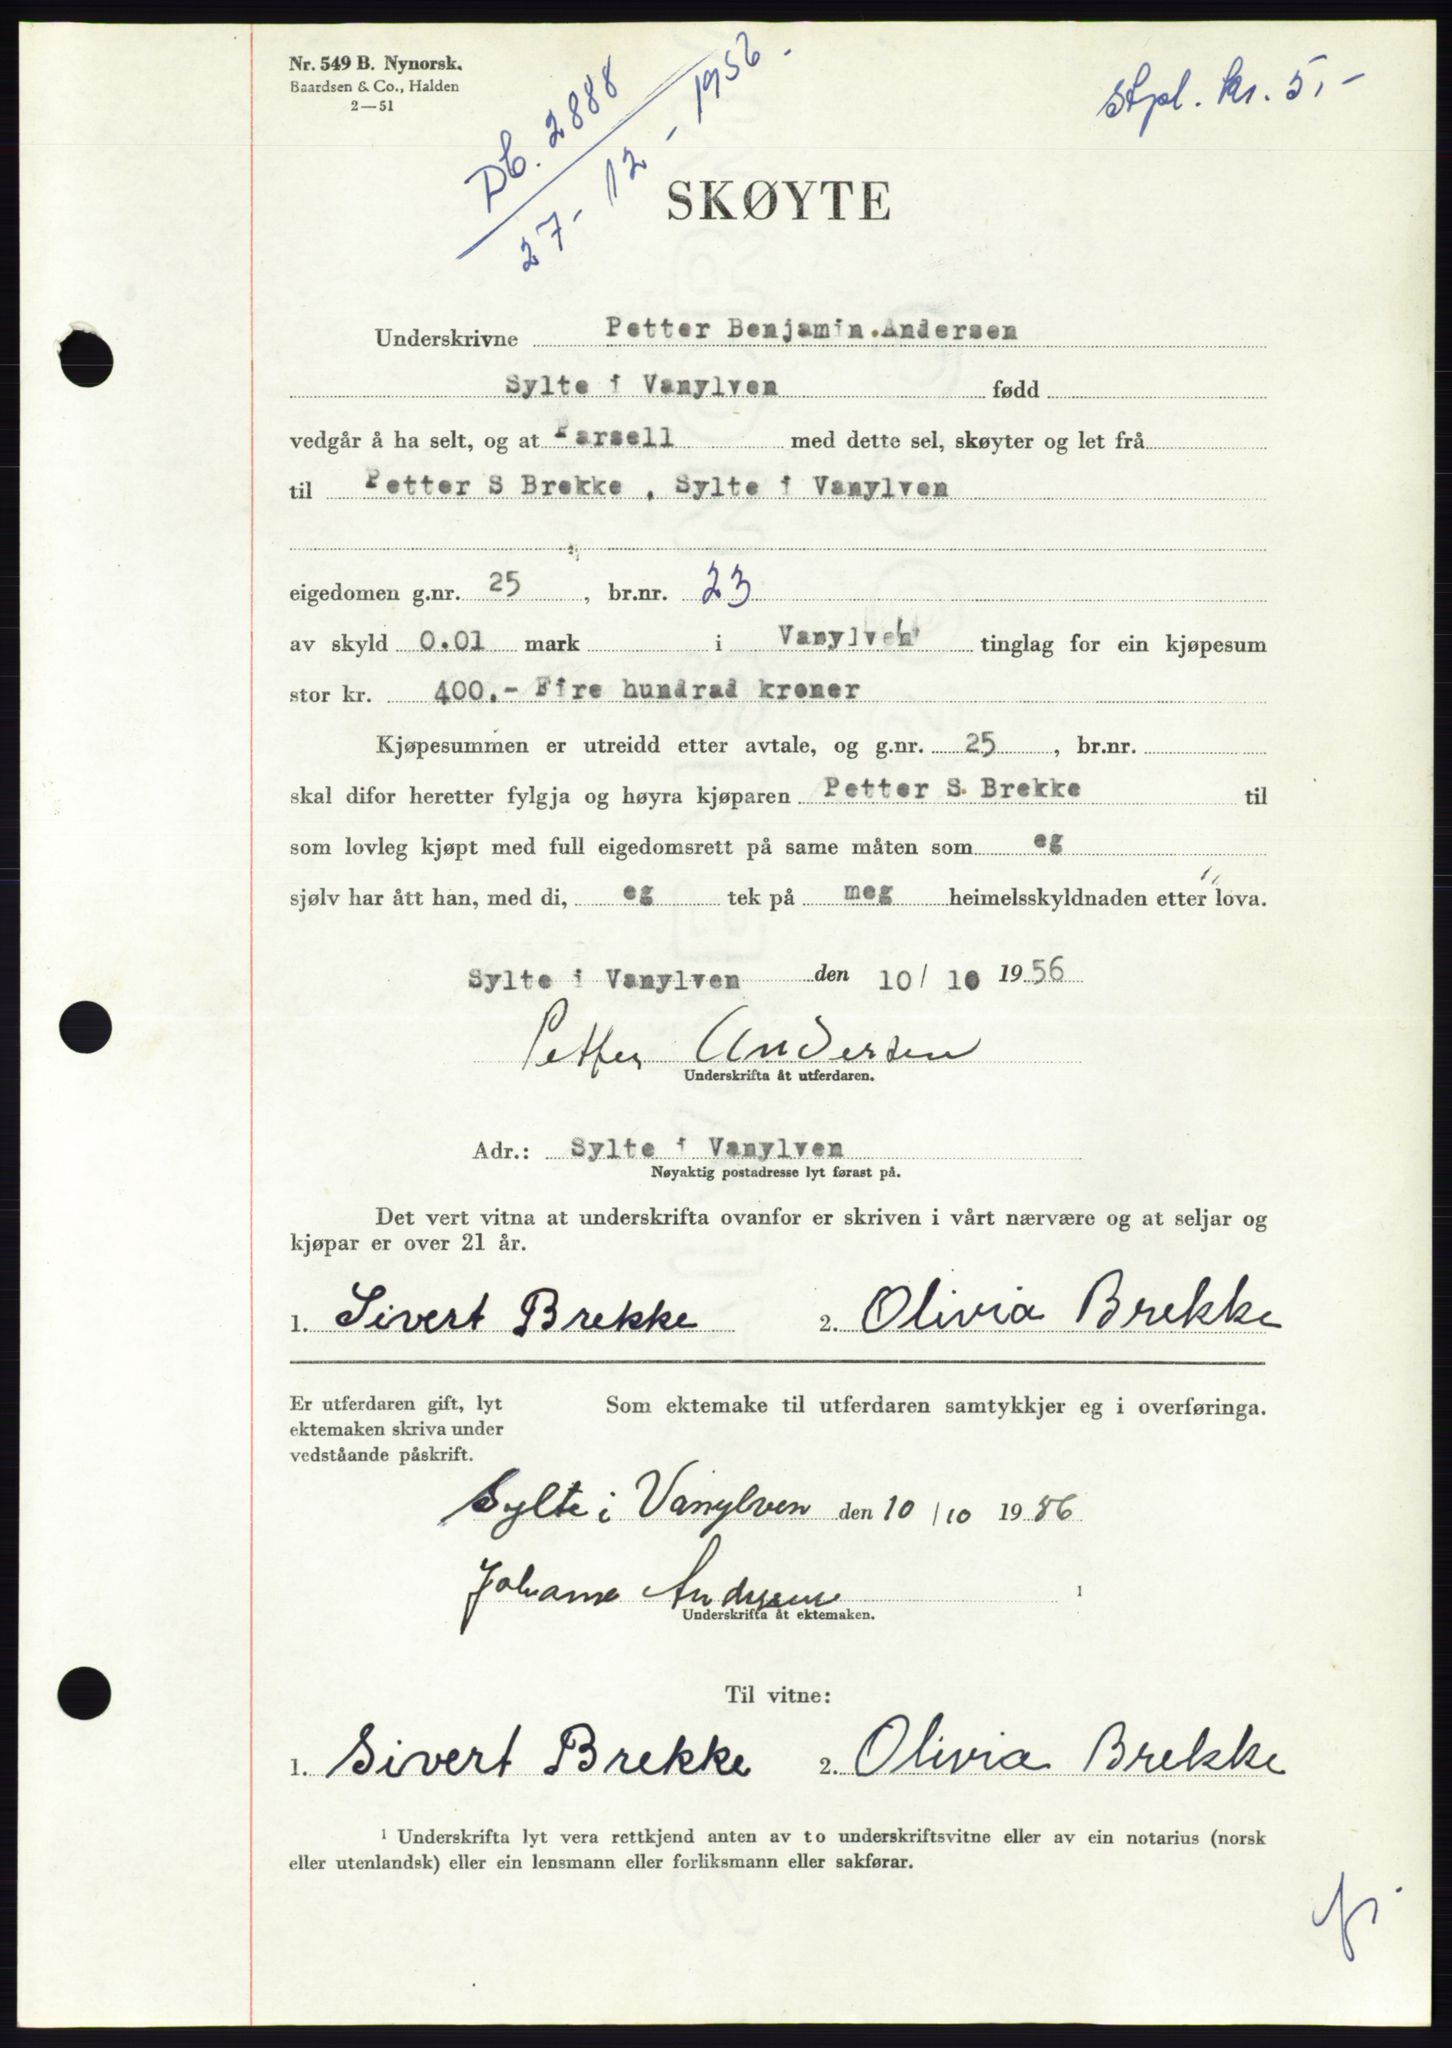 Nr. 549 B. Nynorsk.
Baardsen & Co., Halden
2—51
Db. 2888
27-12-1956.
Stpl. kr. 5,-
SKØYTE
Underskrivne Petter Benjamin.Andersen
Sylte i Vanylven fødd
vedgår å ha selt, og at Parsell med dette sel, skøyter og let frå
til Petter S Brekke , Sylte i Vanylven
eigedomen g.nr. 25 , br.nr. 23
av skyld 0.01 mark i Vanylven tinglag for ein kjøpesum
stor kr. 400.- Fire hundrad kroner
Kjøpesummen er utreidd etter avtale, og g.nr. 25 , br.nr.
skal difor heretter fylgja og høyra kjøparen Petter S. Brekke til
som lovleg kjøpt med full eigedomsrett på same måten som eg
sjølv har ått han, med di, eg tek på meg heimelsskyldnaden etter lova.
Sylte i Vanylven den 10/ 10 1956
Petter Andersen
Underskrifta åt utferdaren.
Adr.: Sylte i Vanylven
Nøyaktig postadresse lyt førast på.
Det vert vitna at underskrifta ovanfor er skriven i vårt nærvære og at seljar og
kjøpar er over 21 år.
1. Sivert Brekke 2. Olivia Brekke
Er utferdaren gift, lyt
ektemaken skriva under
vedståande påskrift.
Som ektemake til utferdaren samtykkjer eg i overføringa.
Sylte i Vanylven den 10/10 1956
Johanne Andersen 1
Underskrifta åt ektemaken.
Til vitne:
1. Sivert Brekke 2. Olivia Brekke
1 Underskrifta lyt vera rettkjend anten av to underskriftsvitne eller av ein notarius (norsk
eller utenlandsk) eller ein lensmann eller forliksmann eller sakførar.